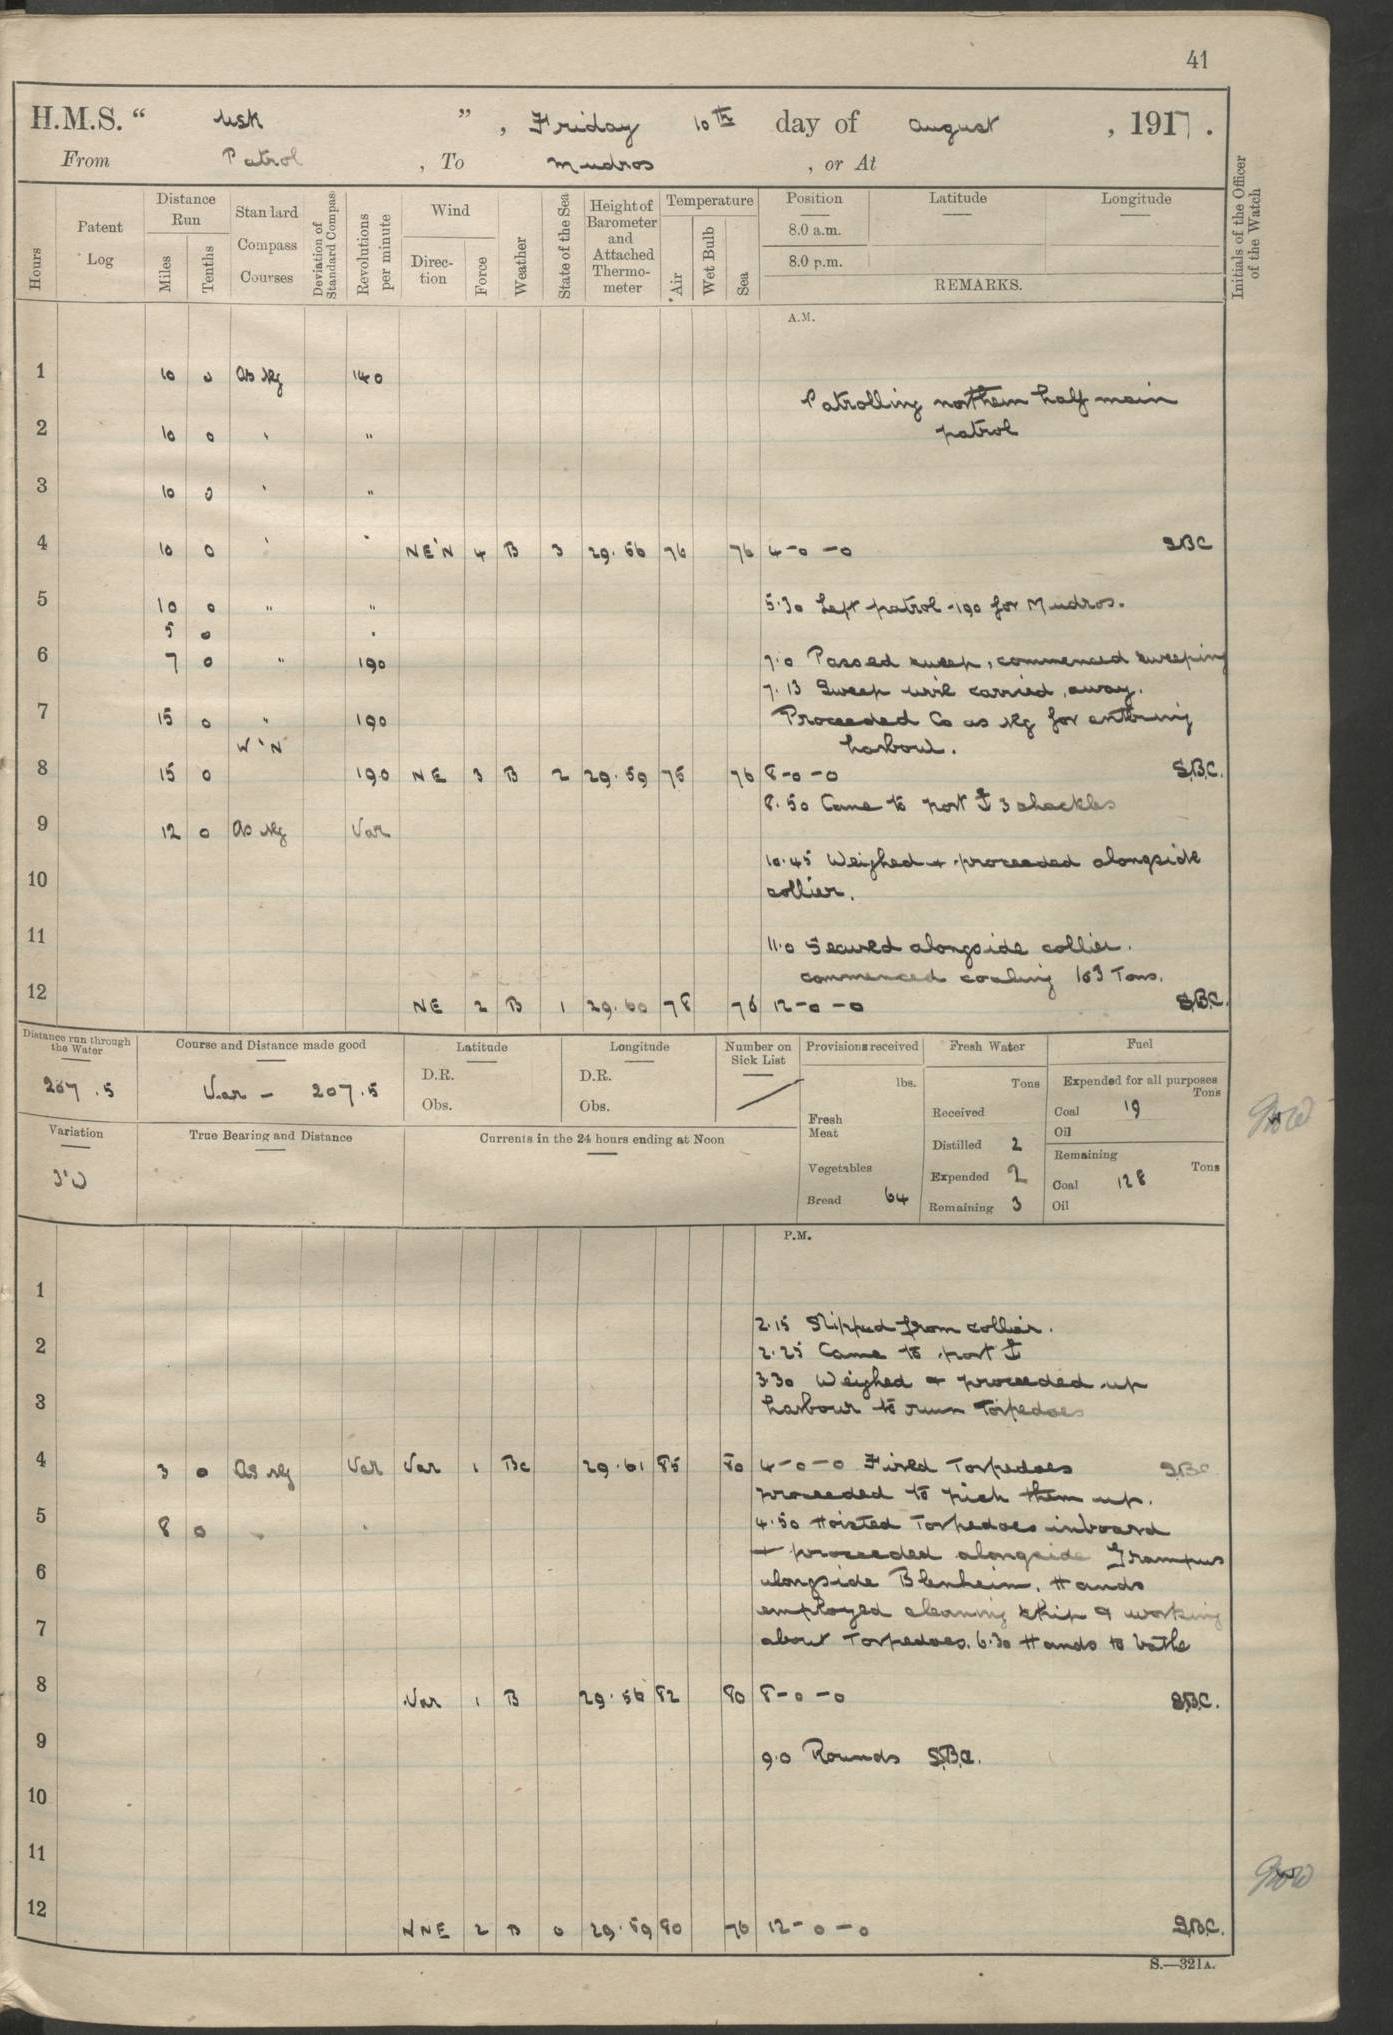 41
H.M.S. " Usk " , Friday 10th day of August , 1917 .
From Patrol , To Mudros , or At
Hours
Patent Log
Distance Run
Miles
Tenths
Standard Compass Courses
Deviation of Standard Compass
Revolutions per minute
Wind
Direction
Force
Weather
State of the Sea
Height of Barometer and Attached Thermometer
Temperature
Air
Wet Bulb
Sea
Position
8.0 a.m.
8.0 p.m.
Latitude
Longitude
REMARKS.
Initials of the Officer of the Watch
A.M.
1 10 0 As req 140
Patrolling northern half main
2 10 0 ' "
patrol
3 10 0 ' "
4 10 0 ' " NE'N 4 B 3 29.56 76 76 4-0-0 SBC
5 10 0 " " 5.30 Left patrol -190 for Mudros.
5 0 "
6 7 0 " 190 7.0 Passed sweep, commenced sweeping
7.13 Sweep wire carried away.
7 15 0 " 190 Proceeded Co as req for entering
W'N harbour.
8 15 0 190 NE 3 B 2 29.59 75 76 8-0-0 S.B.C.
8.50 Came to port ⚓ 3 shackles
9 12 0 As req Var
10.45 Weighed + proceeded alongside
10 collier.
11 11.0 Secured alongside collier.
commenced coaling 103 Tons.
12 NE 2 B 1 29.60 78 76 12-0-0 S.B.C.
Distance run through the Water
207.5
Course and Distance made good
Var - 207.5
Latitude
D.R.
Obs.
Longitude
D.R.
Obs.
Number on Sick List
/
Provisions received
lbs.
Fresh Meat
Vegetables
Bread 64
Fresh Water
Tons
Received
Distilled 2
Expended 2
Remaining 3
Fuel
Expended for all purposes
Tons
Coal 19
Oil
Remaining
Tons
Coal 128
Oil
Variation
True Bearing and Distance
Currents in the 24 hours ending at Noon
P.M.
1
2.15 Slipped from collier.
2 2.25 Came to port ⚓
3.30 Weighed + proceeded up
3 harbour to run Torpedoes
4 3 0 As req Var Var 1 Bc 29.61 85 80 4-0-0 Fired Torpedoes SBC
proceeded to pick them up.
5 8 0 " " 4.50 Hoisted Torpedoes inboard
+ proceeded alongside Grampus
6 alongside Blenheim. Hands
employed cleaning ship & working
7 about Torpedoes. 6.30 Hands to bathe
8 Var 1 B 29.56 82 80 8-0-0 S.B.C.
9 9.0 Rounds S.B.C.
10
11
12 NNE 2 B 0 29.59 80 76 12-0-0 S.B.C.
S.—321A.